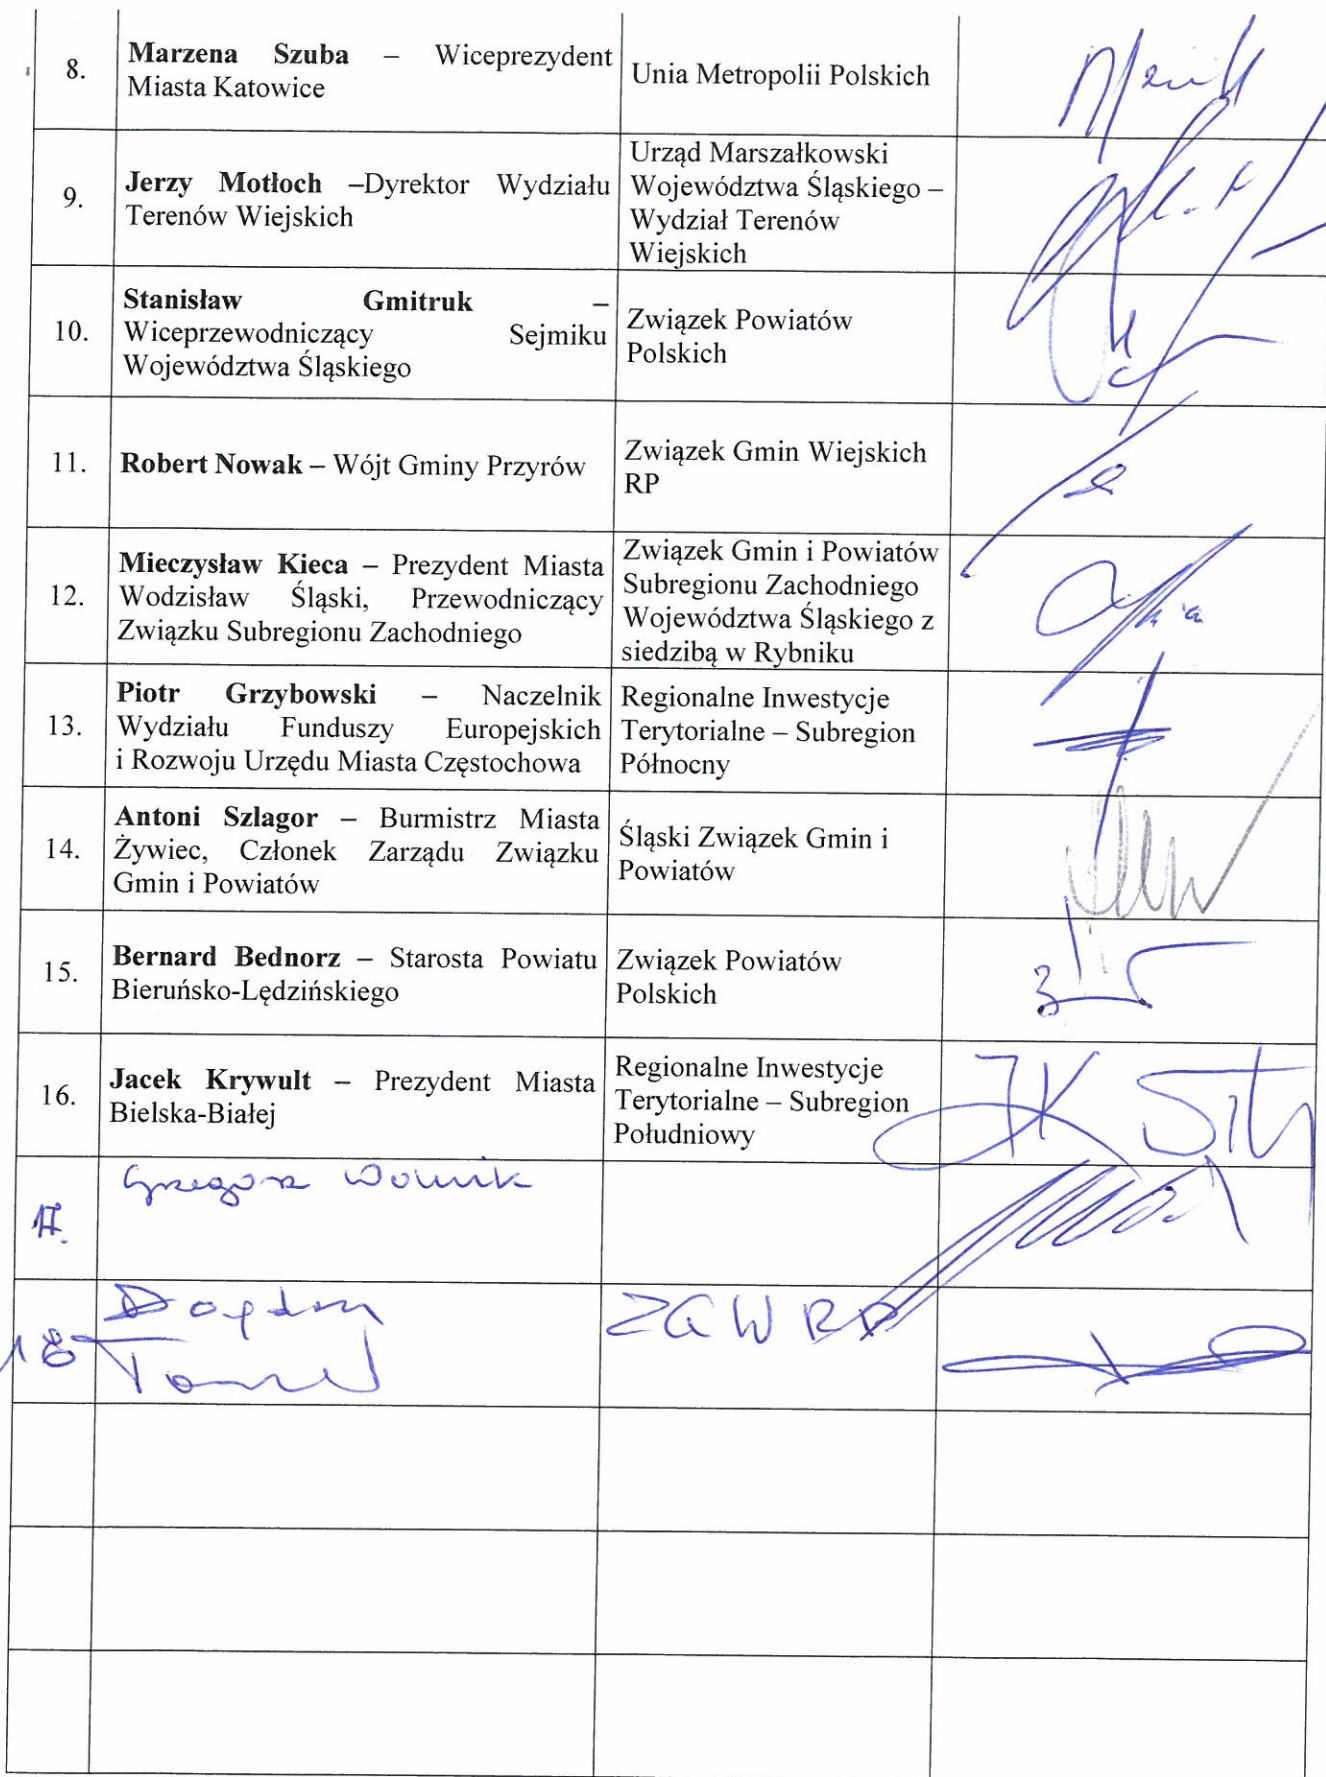 8.
Marzena Szuba – Wiceprezydent
Miasta Katowice
Unia Metropolii Polskich
9.
Jerzy Motłoch –Dyrektor Wydziału
Terenów Wiejskich
Urząd Marszałkowski
Województwa Śląskiego –
Wydział Terenów
Wiejskich
10.
Stanisław Gmitruk –
Wiceprzewodniczący Sejmiku
Województwa Śląskiego
Związek Powiatów
Polskich
11.
Robert Nowak – Wójt Gminy Przyrów
Związek Gmin Wiejskich
RP
12.
Mieczysław Kieca – Prezydent Miasta
Wodzisław Śląski, Przewodniczący
Związku Subregionu Zachodniego
Związek Gmin i Powiatów
Subregionu Zachodniego
Województwa Śląskiego z
siedzibą w Rybniku
13.
Piotr Grzybowski – Naczelnik
Wydziału Funduszy Europejskich
i Rozwoju Urzędu Miasta Częstochowa
Regionalne Inwestycje
Terytorialne – Subregion
Północny
14.
Antoni Szlagor – Burmistrz Miasta
Żywiec, Członek Zarządu Związku
Gmin i Powiatów
Śląski Związek Gmin i
Powiatów
15.
Bernard Bednorz – Starosta Powiatu
Bieruńsko-Lędzińskiego
Związek Powiatów
Polskich
16.
Jacek Krywult – Prezydent Miasta
Bielska-Białej
Regionalne Inwestycje
Terytorialne – Subregion
Południowy
17.
Grzegorz Wolnik
18
ZGWRP